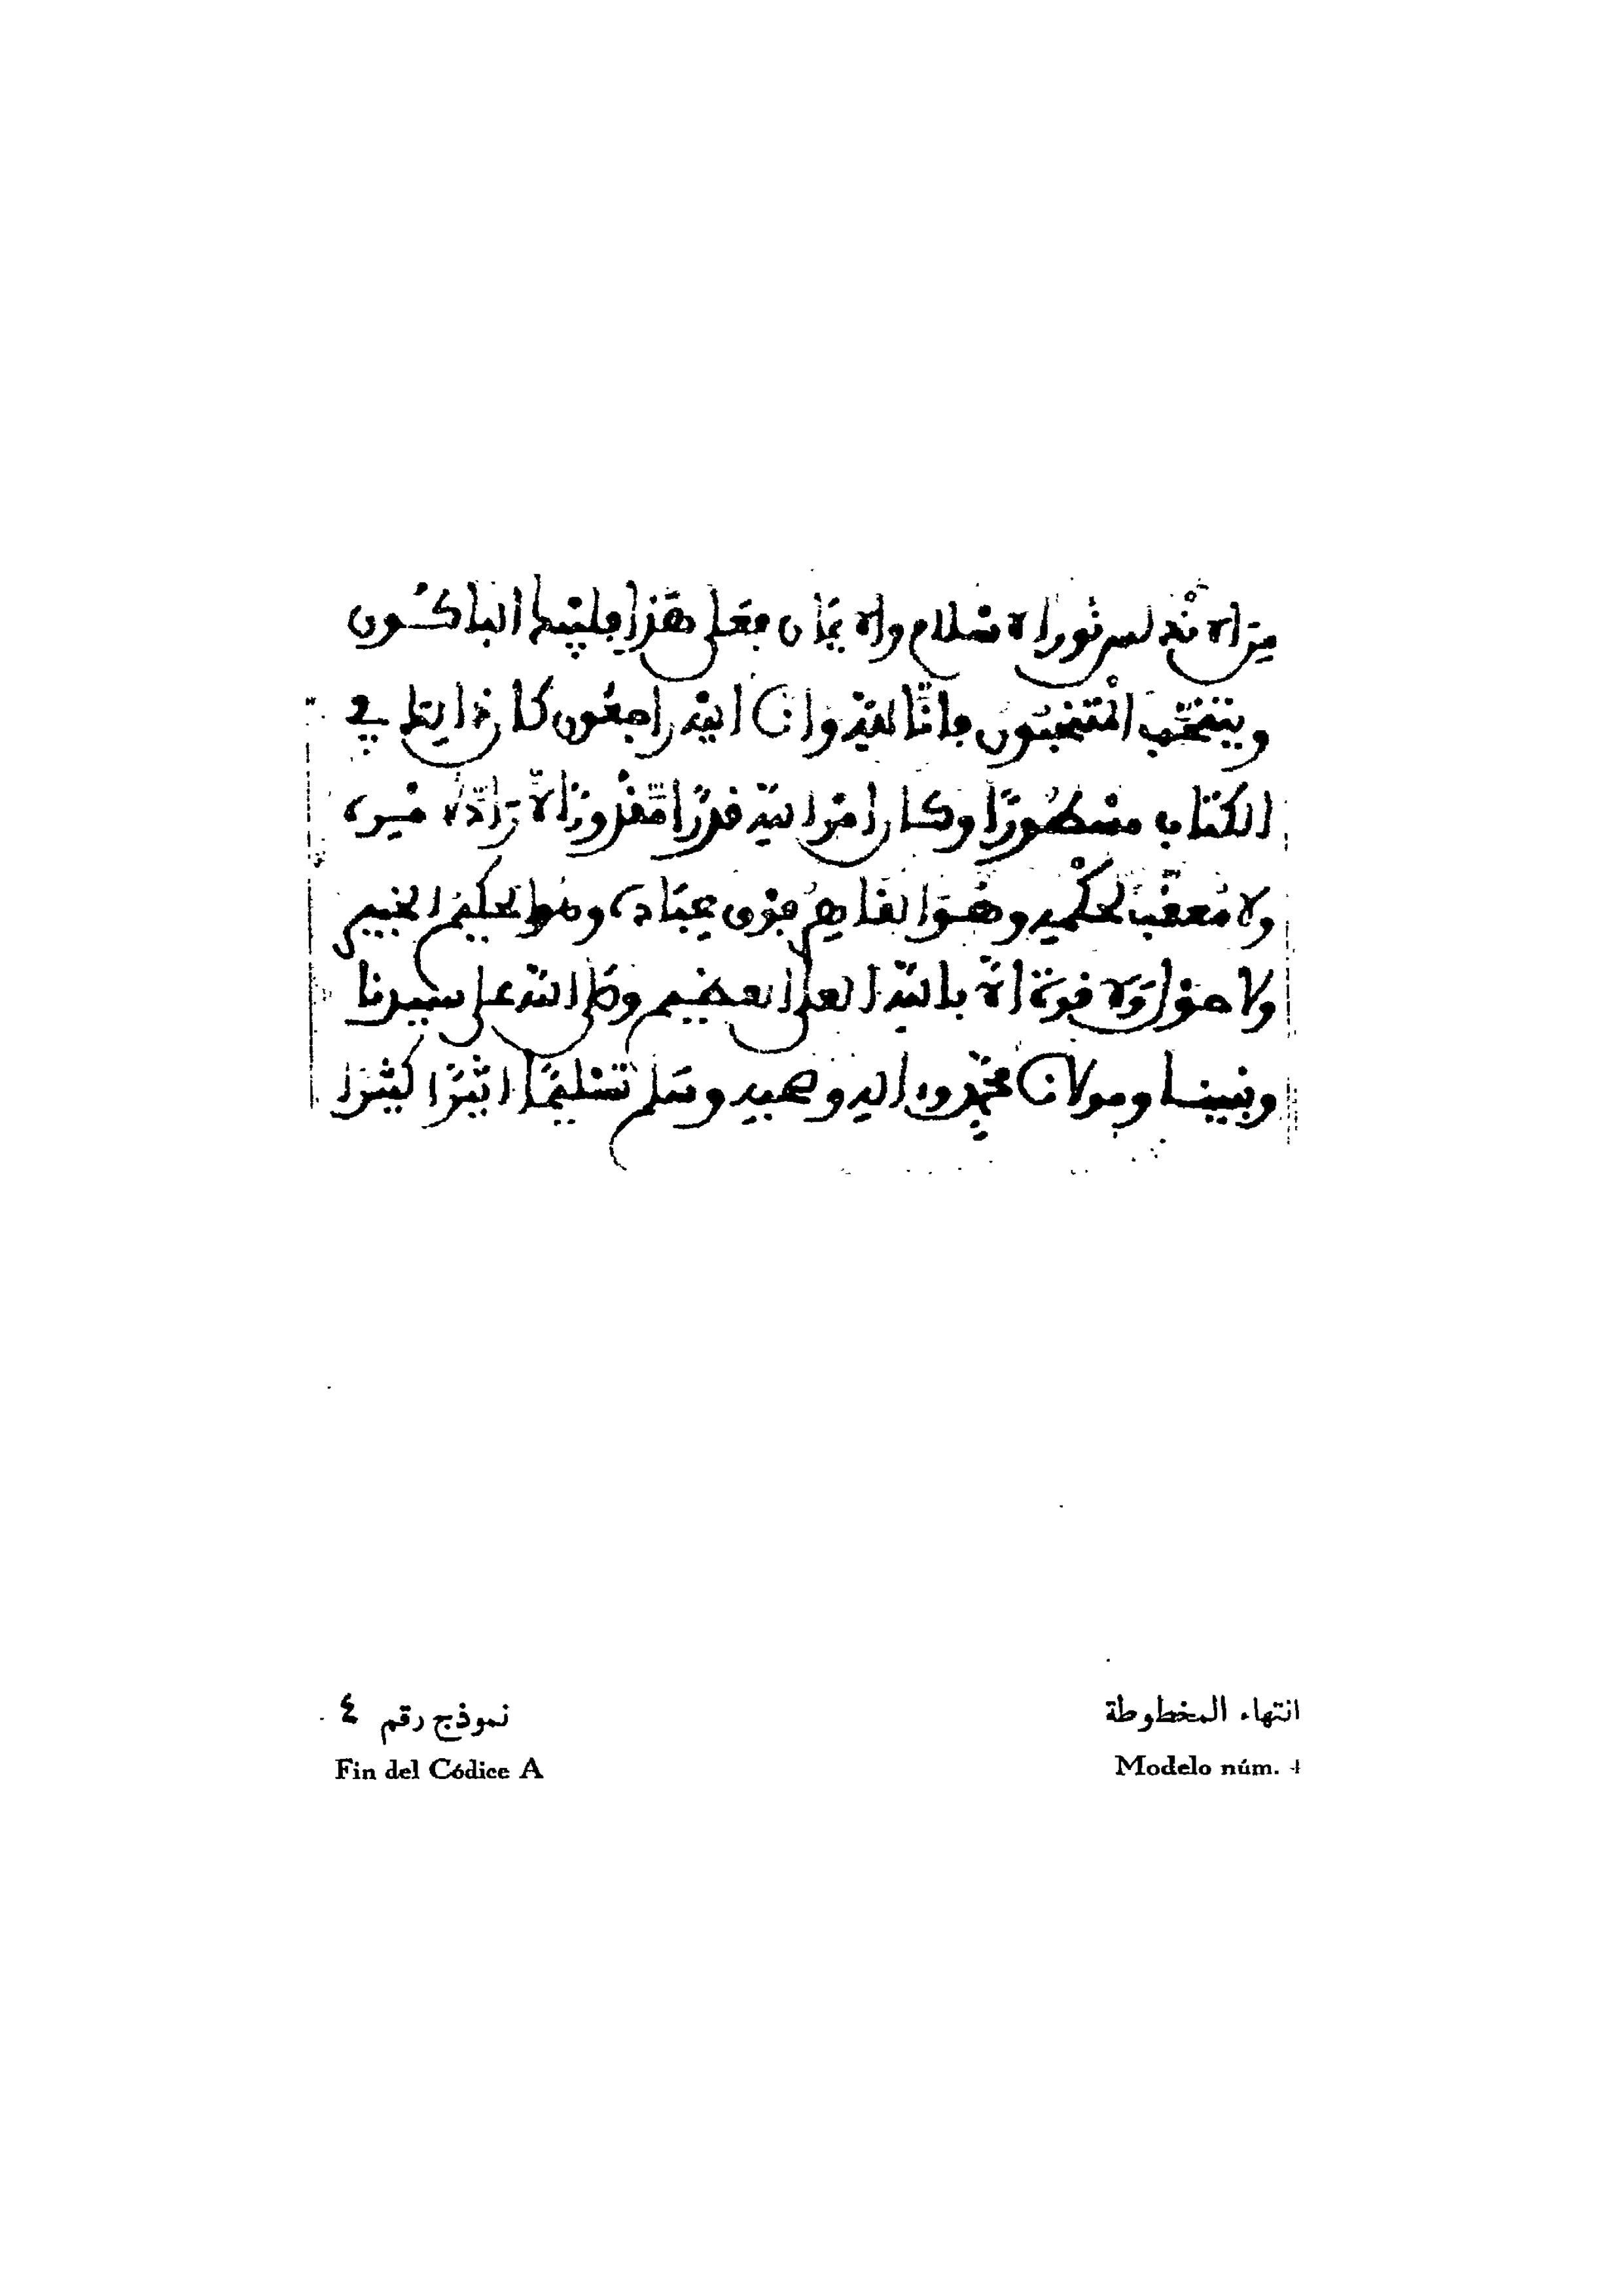 من الاندلس نور الاسلام والايمان فعلى هذا فليبك الباكون
وينتحب المنتحبون فانا لله وانا اليه راجعون كان ذلك في
الكتاب مسطورا وكان امر الله قدرا مقدورا لا راد لامره
ولا معقب لحكمه وهو القاهر فوق عباده وهو الحكيم الخبير
ولا حول ولا قوة الا بالله العلي العظيم وصلى الله على سيدنا
ونبينا ومولانا محمد وءاله وصحبه وسلم تسليما اثيرا كثيرا
انتهاء المخطوطة نموذج رقم ٤
Fin del Códice A Modelo núm. 4